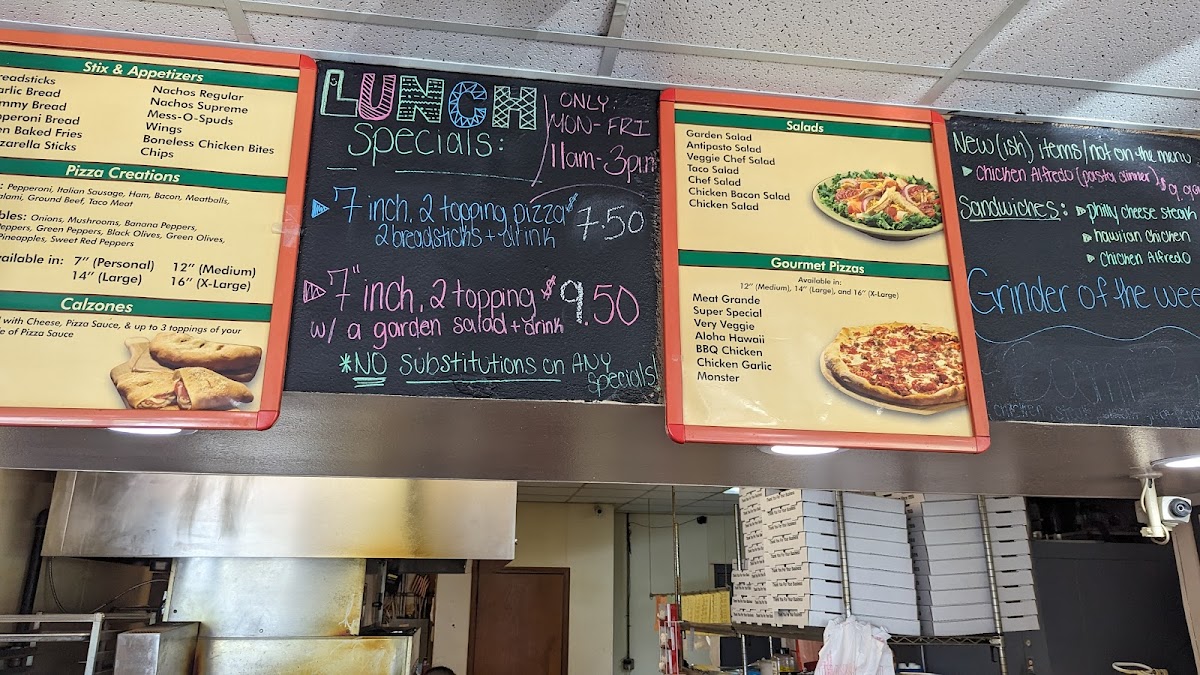 Stix & Appetizers
readsticks
arlic Bread
mmy Bread
peroni Bread
en Baked Fries
zzarella Sticks
Nachos Regular
Nachos Supreme
Mess-O-Spuds
Wings
Boneless Chicken Bites
Chips
Pizza Creations
: Pepperoni, Italian Sausage, Ham, Bacon, Meatballs,
lami, Ground Beef, Taco Meat
bles: Onions, Mushrooms, Banana Peppers,
eppers, Green Peppers, Black Olives, Green Olives,
Pineapples, Sweet Red Peppers
vailable in: 7" (Personal) 12" (Medium)
14" (Large) 16" (X-Large)
Calzones
d with Cheese, Pizza Sauce, & up to 3 toppings of your
e of Pizza Sauce
LUNCH
Specials:
ONLY:
MON-FRI
11am-3pm
7 inch, 2 topping pizza $7.50
2 breadsticks + drink
7" inch, 2 topping $9.50
w/ a garden salad + drink
*NO Substitutions on ANY
specials!
Salads
Garden Salad
Antipasto Salad
Veggie Chef Salad
Taco Salad
Chef Salad
Chicken Bacon Salad
Chicken Salad
Gourmet Pizzas
Available in:
12" (Medium), 14" (Large), and 16" (X-Large)
Meat Grande
Super Special
Very Veggie
Aloha Hawaii
BBQ Chicken
Chicken Garlic
Monster
New(ish) items/not on the menu
chicken Alfredo (pasta dinner)
Sandwiches: philly cheese steak
hawiian chicken
chicken Alfredo
Grinder of the wee